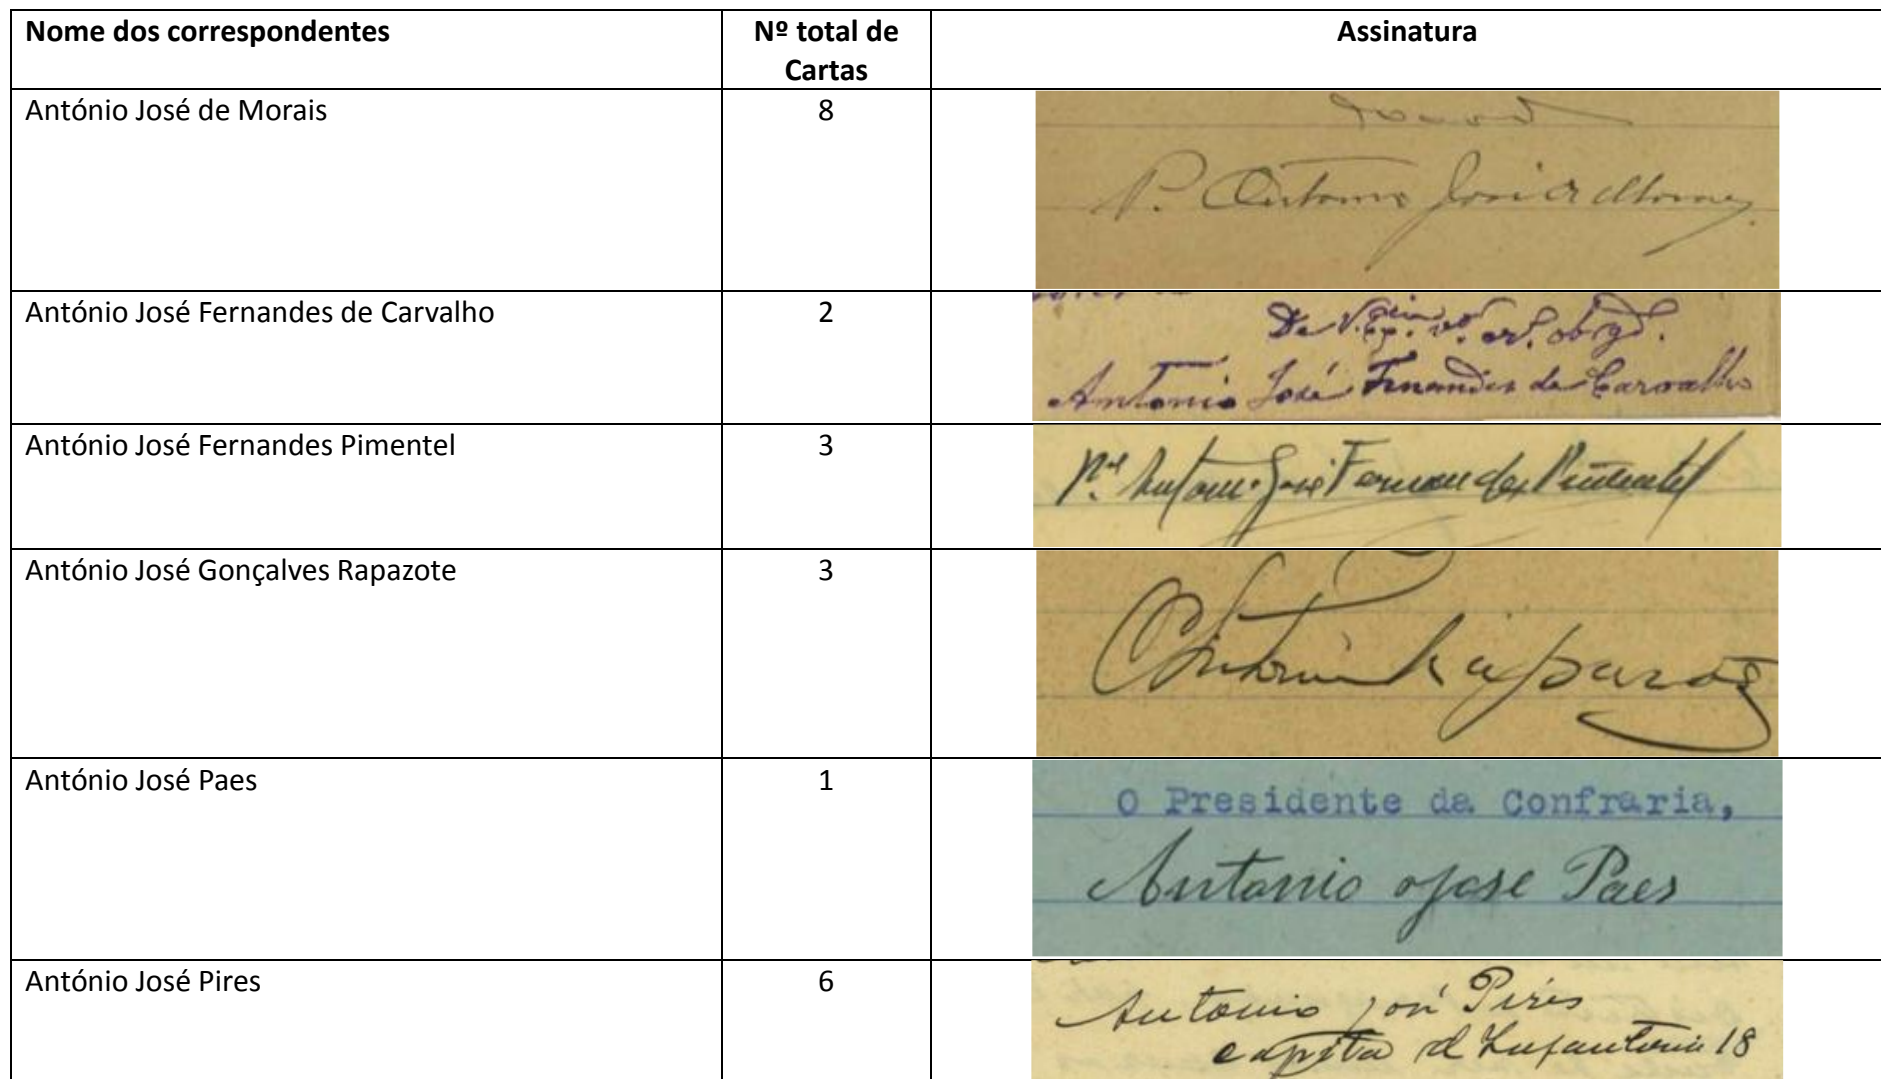 Nome dos correspondentes
Nº total de
Cartas
Assinatura
António José de Morais
8
P. Antonio José de Moraes
António José Fernandes de Carvalho
2
De V. Ex.cia
Antonio José Fernandes de Carvalho
António José Fernandes Pimentel
3
P.e Antonio José Fernandes Pimentel
António José Gonçalves Rapazote
3
Antonio Rapazote
António José Paes
1
O Presidente da Confraria,
Antonio Jose Paes
António José Pires
6
Antonio José Pires
capitão d Infantaria 18